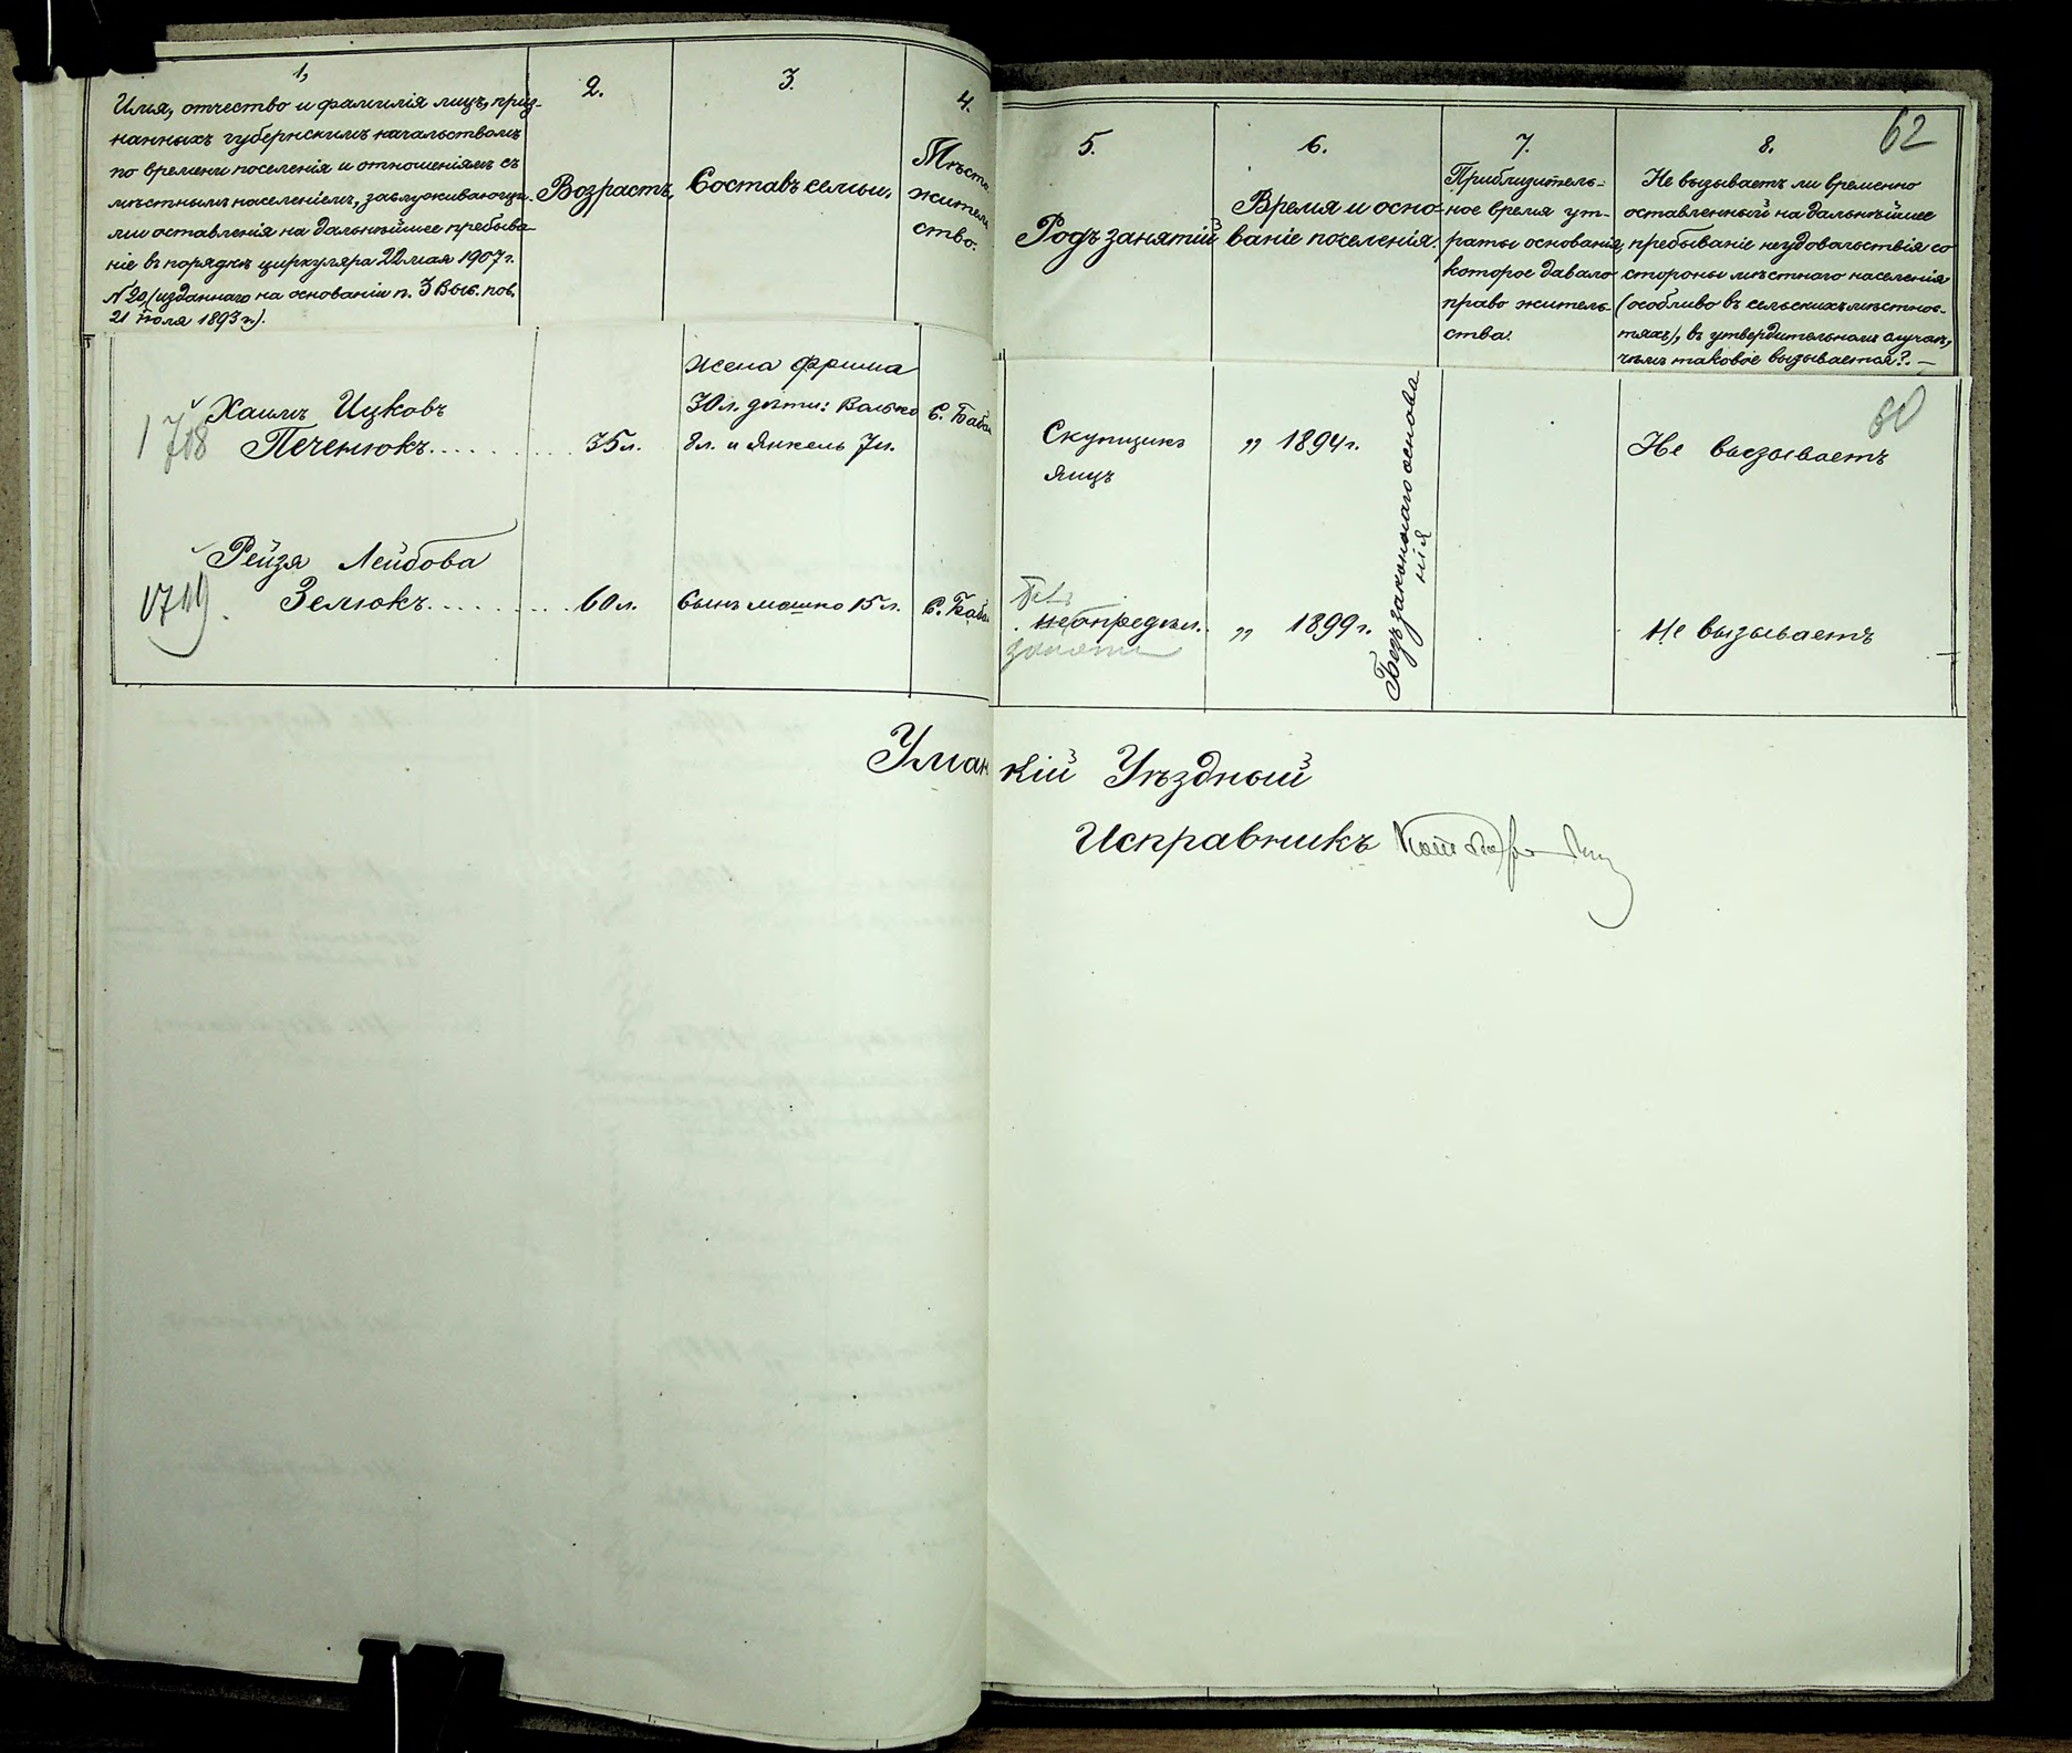 1,
Имя, отчество и фамилія лицъ, приз-
нанныхъ губернскимъ начальствомъ
по времени поселенія и отношеніямъ съ
мѣстнымъ населеніемъ, заслуживающи-
ми оставленія на дальнѣйшее пребыва-
ніе въ порядкѣ циркуляра 22 мая 1907 г.
№ 20, (изданнаго на основаніи п. 3 Выс. пов.
21 іюля 1893 г.).
2.
Возрастъ.
3.
Составъ семьи.
4.
Мѣсто
житель
ство.
5.
Родъ занятій
6.
Время и осно-
ваніе поселенія.
7.
Приблизитель-
ное время ут-
раты основанія,
которое давало
право житель-
ства.
8.
62
Не вызываетъ ли временно
оставленный на дальнѣйшее
пребываніе неудовольствія со
стороны мѣстнаго населенія
(особливо въ сельскихъ мѣстнос-
тяхъ), въ утвердительномъ случаѣ,
чѣмъ таковое вызывается?. —
1718
Хаимъ Ицковъ
Печенюкъ..........
35 л.
Жена Фрима
30 л. дѣти: Волько
8 л. и Янкель 7 л.
С. Баба
Скупщикъ
яицъ
" 1894 г.
Безъ законнаго основа
нія
Не вызываетъ
1719.
Рейзя Лейбова
Зелюкъ..........
60 л.
Сынъ Мошко 15 л.
С. Баба
Безъ
неопредѣл.
занятій
" 1899 г.
Не вызываетъ
Уманскій Уѣздный
Исправникъ